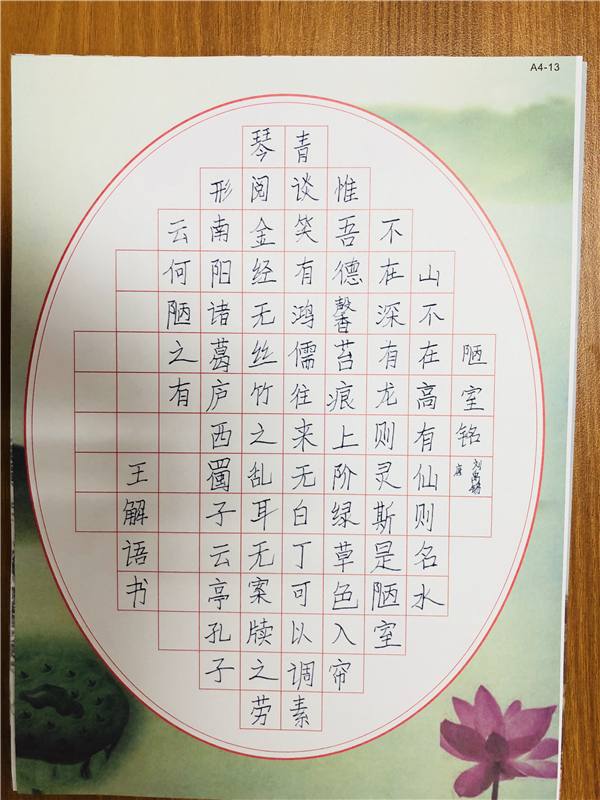 A4-13
陋室铭
刘禹锡
唐
山不在高有仙则名水
不在深有龙则灵斯是陋室
惟吾德馨苔痕上阶绿草色入帘
青谈笑有鸿儒往来无白丁可以调素
琴阅金经无丝竹之乱耳无案牍之劳
形南阳诸葛庐西蜀子云亭孔子
云何陋之有
王解语书